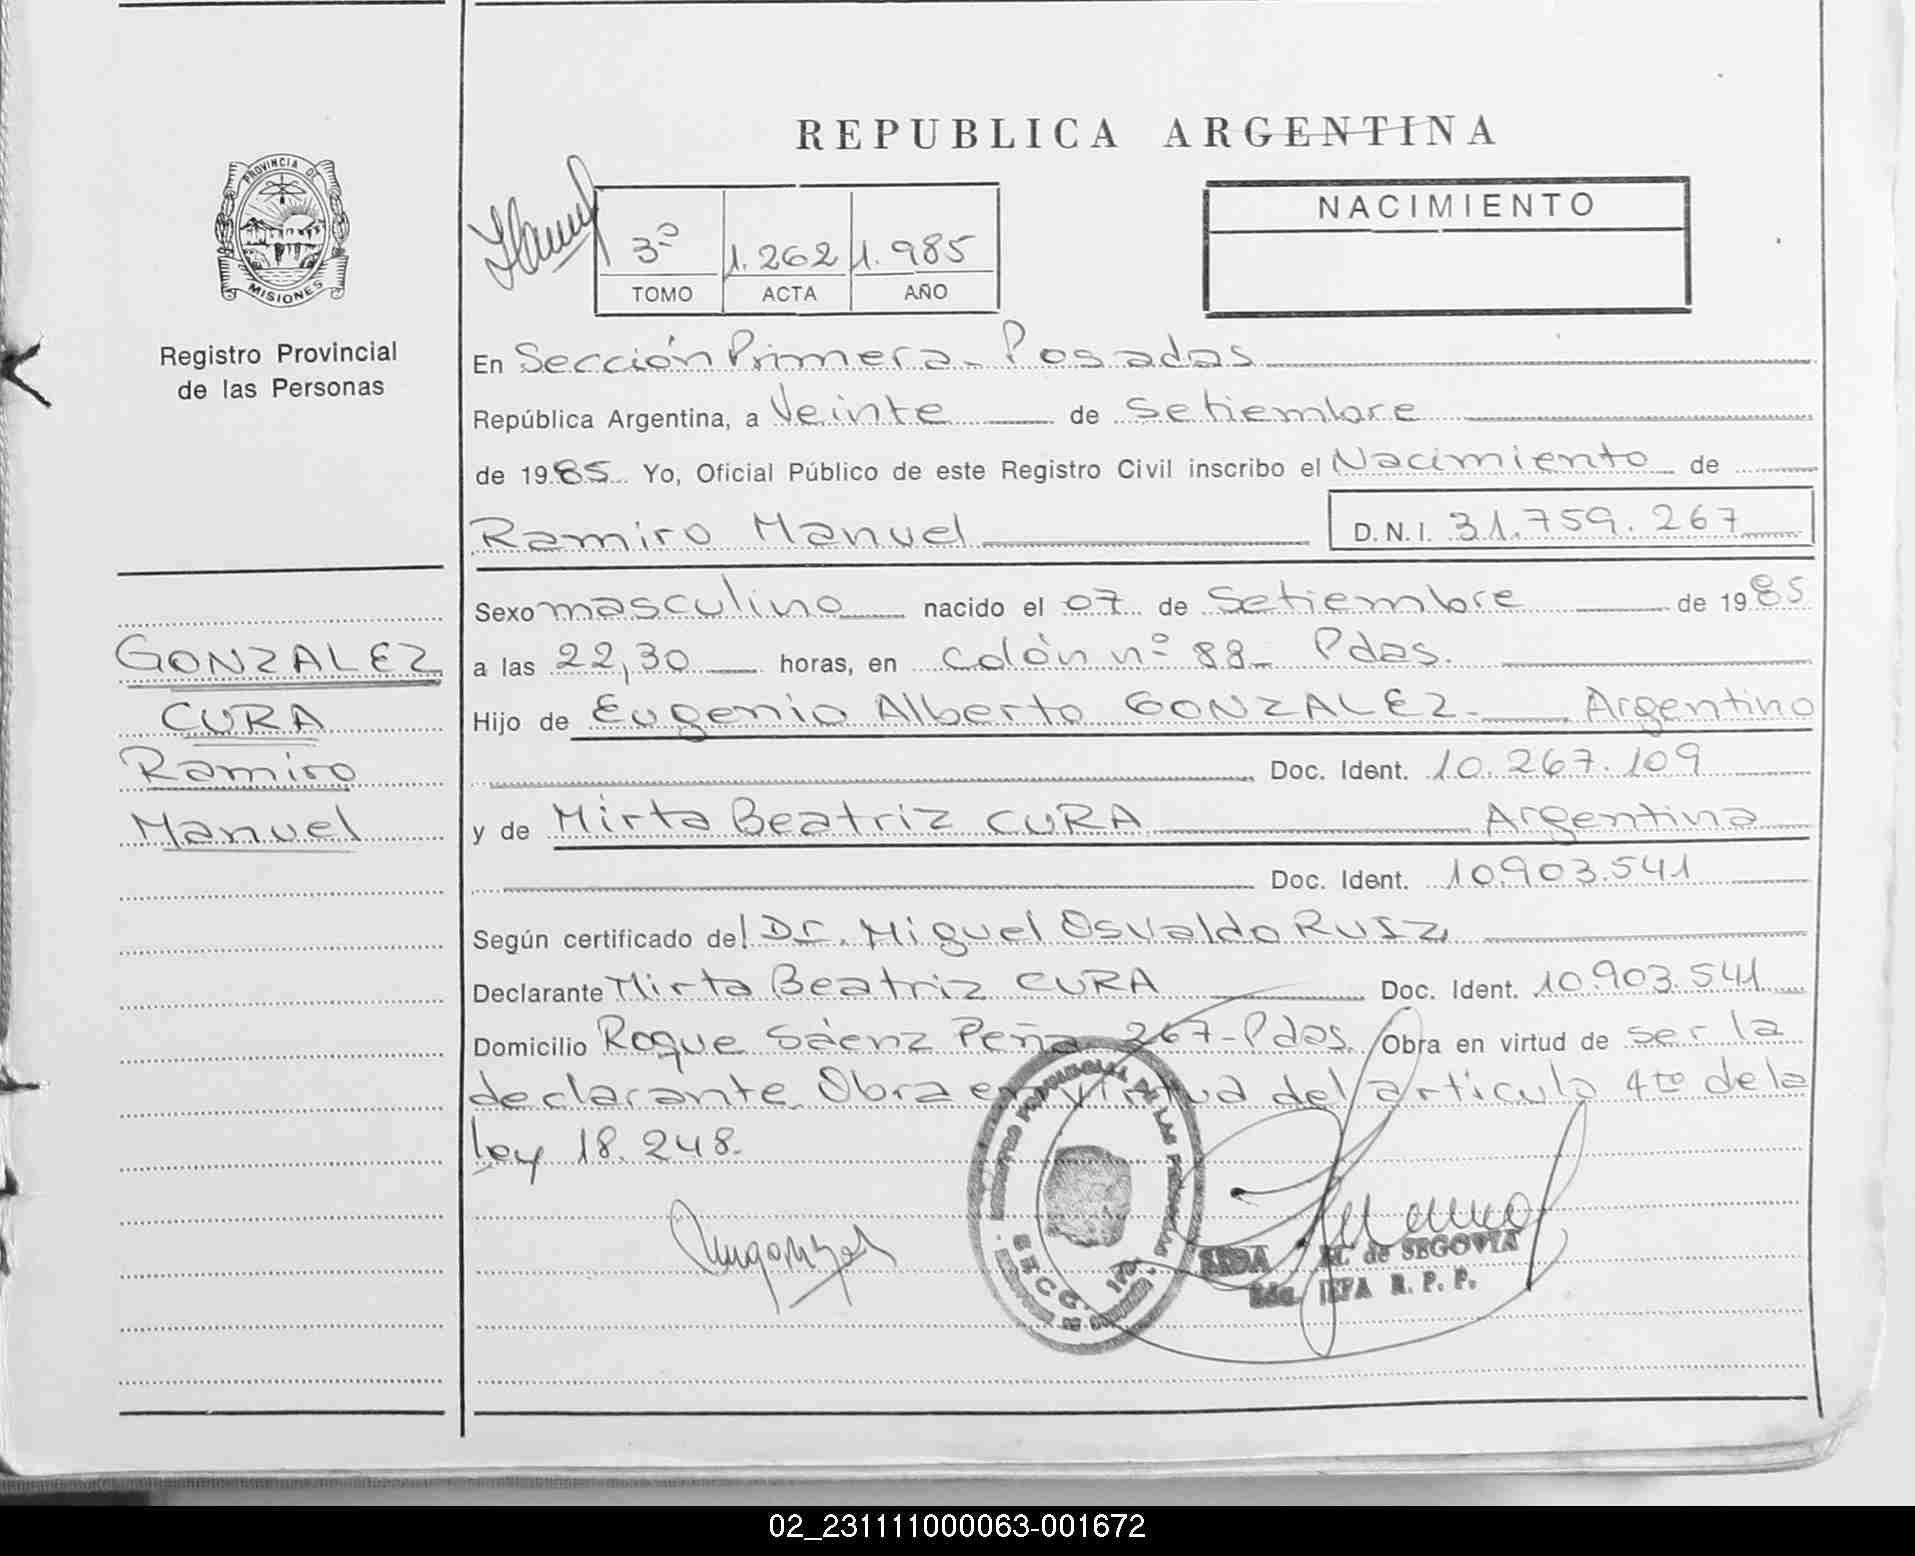 REPUBLICA ARGENTINA
PROVINCIA DE
MISIONES
Registro Provincial
de las Personas
3º 1.262 1.985
TOMO ACTA AÑO
NACIMIENTO
En Sección Primera - Posadas
República Argentina, a Veinte de Setiembre
de 1985 Yo, Oficial Público de este Registro Civil inscribo el Nacimiento de
Ramiro Manuel D.N.I. 31.759.267
GONZALEZ
CURA
Ramiro
Manuel
Sexo masculino nacido el 07 de Setiembre de 1985
a las 22,30 horas, en colón nº 88- Pdas.
Hijo de Eugenio Alberto GONZALEZ- Argentino
Doc. Ident. 10.267.109
y de Mirta Beatriz CURA Argentina
Doc. Ident. 10.903.541
Según certificado del Dr. Miguel Osvaldo RUIZ
Declarante Mirta Beatriz CURA Doc. Ident. 10.903.541
Domicilio Roque Sáenz Peña 267-Pdas. Obra en virtud de ser la
declarante. Obra en virtud del articulo 4to de la
ley 18.248.
REGISTRO PROVINCIAL DE LAS PERSONAS
SECC. 1ra
M. de SEGOVIA
JEFA R. P. P.
02_231111000063-001672